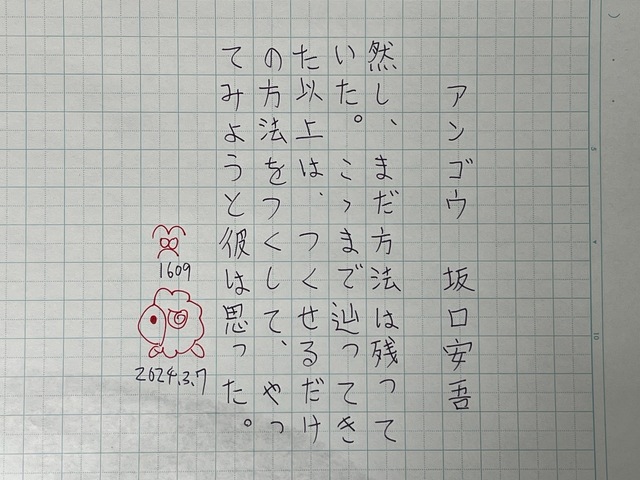 アンゴウ 坂口安吾
然し、まだ方法は残って
いた。こゝまで辿ってき
た以上は、つくせるだけ
の方法をつくして、やっ
てみようと彼は思った。
1609
2024.3.7
5
10